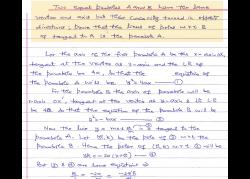 Two equal parabolas A and B have the same
vertex and axis but their concavity turned in opposite
directions; Prove that the locus of poles w.r.t B
of tangent to A is the parabola A.
Let the axis of the parabola A be the x-axis
tangent at the vertex as y-axis and the L.R of
the parabola be 4a. So that the equation
of the parabola A will be y² = 4ax — ①
Given the axis of the parabola B will be
x-axis, tangent at the vertex as y-axis & its L.R
be 4a so that the equation of the parabola B will be
y² = -4ax — ②
Now the line y = mx + a/m is tangent to the
parabola A. Let (h, k) be the pole of w.r.t the
parabola B. Then the polar of (h, k) w.r.t ② will be
yk = -2a(x+h)
But ③ & ④ are same equations